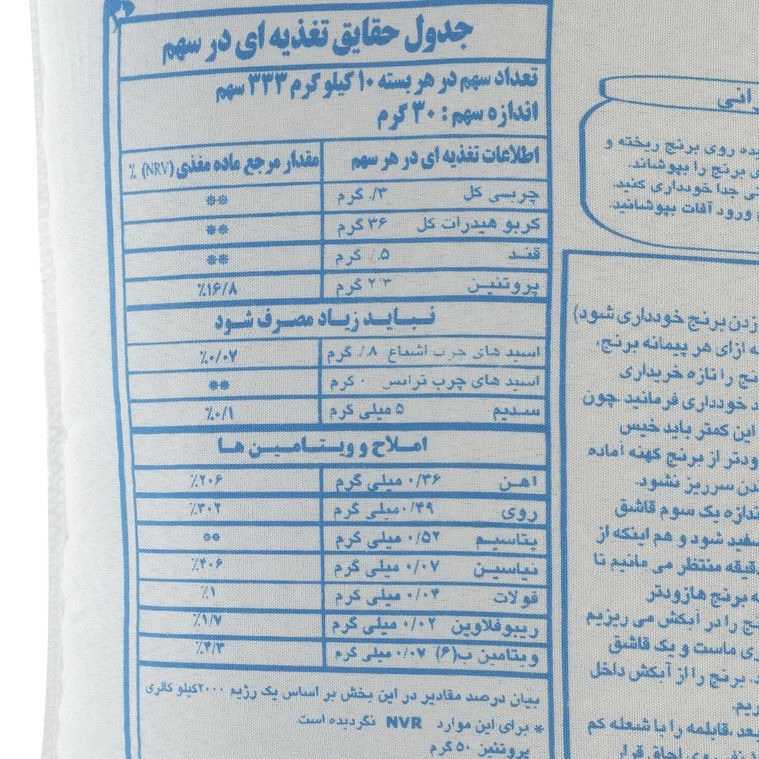 جدول حقایق تغذیه ای در سهم
تعداد سهم در هر بسته ۱۰ کیلو گرم ۳۳۳ سهم
اندازه سهم : ۳۰ گرم
اطلاعات تغذیه ای در هر سهم مقدار مرجع ماده مغذی (NRV) ٪
چربی کل ۳/. گرم **
کربو هیدرات کل ۳۶ گرم **
قند ۵/. گرم **
پروتئین گرم ٪۱۶/۸
نباید زیاد مصرف شود
اسید های چرب اشباع ۸/. گرم ٪۰/۰۷
اسید های چرب ترانس ۰ گرم **
سدیم ۵ میلی گرم ٪۰/۱
املاح و ویتامین ها
اهن ۰/۳۶ میلی گرم ٪۲۰۶
روی ۰/۴۹ میلی گرم ٪۳۰۲
پتاسیم ۰/۵۲ میلی گرم **
نیاسین ۰/۰۷ میلی گرم ٪۴۰۶
فولات ۰/۰۴ میلی گرم ٪۱
ریبوفلاوین ۰/۰۲ میلی گرم ٪۱/۷
ویتامین ب(۶) ۰/۰۷ میلی گرم ٪۴/۳
بیان درصد مقادیر در این بخش بر اساس یک رژیم ۲۰۰۰ کیلو کالری
* برای این موارد NVR نگردیده است
پروتئین ۵۰ گرم
رانی
یده روی برنج ریخته و
ی برنج را بپوشاند.
تی جدا خودداری کنید.
ورود آفات بپوشانید.
زدن برنج خودداری شود)
ه ازای هر پیمانه برنج،
نج را تازه خریداری
د خودداری فرمانید چون
این کمتر باید خیس
ودتر از برنج کهنه آماده
دن سرریز نشود.
ندازه یک سوم قاشق
سفید شود و هم اینکه از
دقیقه منتظر می مانیم تا
ه برنج هازودتر
ج را در آبکش می ریزیم
ری ماست و یک قاشق
د. برنج را از آبکش داخل
ریم.
بعد، قابلمه را با شعله کم
روی اجاق قرار